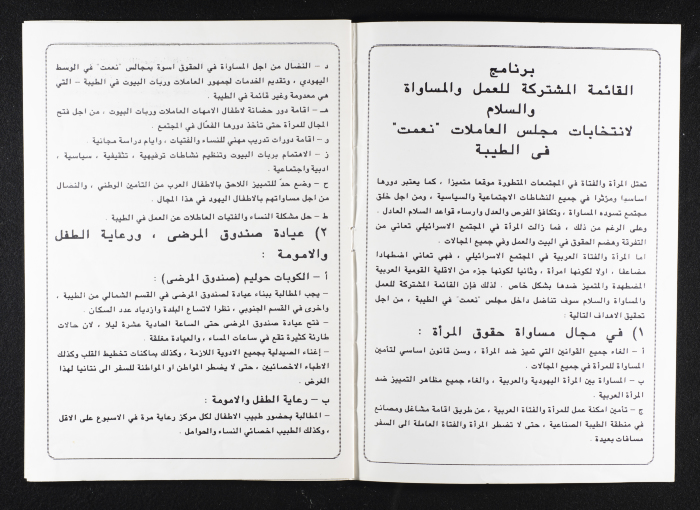 برنامج
القائمة المشتركة للعمل والمساواة
والسلام
لانتخابات مجلس العاملات "نعمت"
في الطيبة
تحتل المرأة والفتاة في المجتمعات المتطورة موقعا متميزا ، كما يعتبر دورها
اساسيا ومؤثرا في جميع النشاطات الاجتماعية والسياسية ، ومن اجل خلق
مجتمع تسوده المساواة ، وتكافؤ الفرص والعدل وارساء قواعد السلام العادل .
وعلى الرغم من ذلك ، فما زالت المرأة في المجتمع الاسرائيلي تعاني من
التفرثة وهضم الحقوق في البيت والعمل وفي جميع المجالات .
اما المرأة والفتاة العربية في المجتمع الاسرائيلي ، فهي تعاني اضطهادا
مضاعفا ، اولا لكونها امرأة ، وثانيا لكونها جزء من الاقلية القومية العربية
المضطهدة والمتميز ضدها بشكل خاص . لذلك فإن القائمة المشتركة للعمل
والمساواة والسلام سوف تناضل داخل مجلس "نعمت" في الطيبة ، من اجل
تحقيق الاهداف التالية :
١) في مجال مساواة حقوق المرأة :
أ – الغاء جميع القوانين التي تميز ضد المرأة ، وسن قانون اساسي لتأمين
المساواة للمرأة في جميع المجالات .
ب – المساواة بين المرأة اليهودية والعربية ، والغاء جميع مظاهر التمييز ضد
المرأة العربية .
ج – تأمين امكنة عمل للمرأة والفتاة العربية ، عن طريق اقامة مشاغل ومصانع
في منطقة الطيبة الصناعية ، حتى لا تضطر المرأة والفتاة العاملة الى السفر
مسافات بعيدة .
د – النضال من اجل المساواة في الحقوق اسوة بمجالس "نعمت" في الوسط
اليهودي ، وتقديم الخدمات لجمهور العاملات وربات البيوت في الطيبة – التي
هي معدومة وغير قائمة في الطيبة .
هـ – اقامة دور حضانة لاطفال الامهات العاملات وربات البيوت ، من اجل فتح
المجال للمرأة حتى تأخذ دورها الفعّال في المجتمع .
و – اقامة دورات تدريب مهني للنساء والفتيات ، وايام دراسة مجانية .
ز – الاهتمام بربات البيوت وتنظيم نشاطات ترفيهية ، تثقيفية ، سياسية ،
ادبية واجتماعية .
ح – وضع حدّ للتمييز اللاحق بالاطفال العرب من التأمين الوطني ، والنضال
من اجل مساواتهم بالاطفال اليهود في هذا المجال .
ط – حل مشكلة النساء والفتيات العاطلات عن العمل في الطيبة .
٢) عيادة صندوق المرضى ، ورعاية الطفل
والامومة :
أ – الكوبات حوليم (صندوق المرضى) :
– يجب المطالبة ببناء عيادة لصندوق المرضى في القسم الشمالي من الطيبة ،
واخرى في القسم الجنوبي ، نظرا لاتساع البلدة وازدياد عدد السكان .
– فتح عيادة صندوق المرضى حتى الساعة الحادية عشرة ليلا ، لان حالات
طارئة كثيرة تقع في ساعات المساء ، والعيادة مغلقة .
– إغناء الصيدلية بجميع الادوية اللازمة ، وكذلك بماكنات تخطيط القلب وكذلك
الاطباء الاخصائيين ، حتى لا يضطر المواطن او المواطنة للسفر الى نتانيا لهذا
الغرض .
ب – رعاية الطفل والامومة :
– المطالبة بحضور طبيب الاطفال لكل مركز رعاية مرة في الاسبوع على الاقل
، وكذلك الطبيب اخصائي النساء والحوامل .